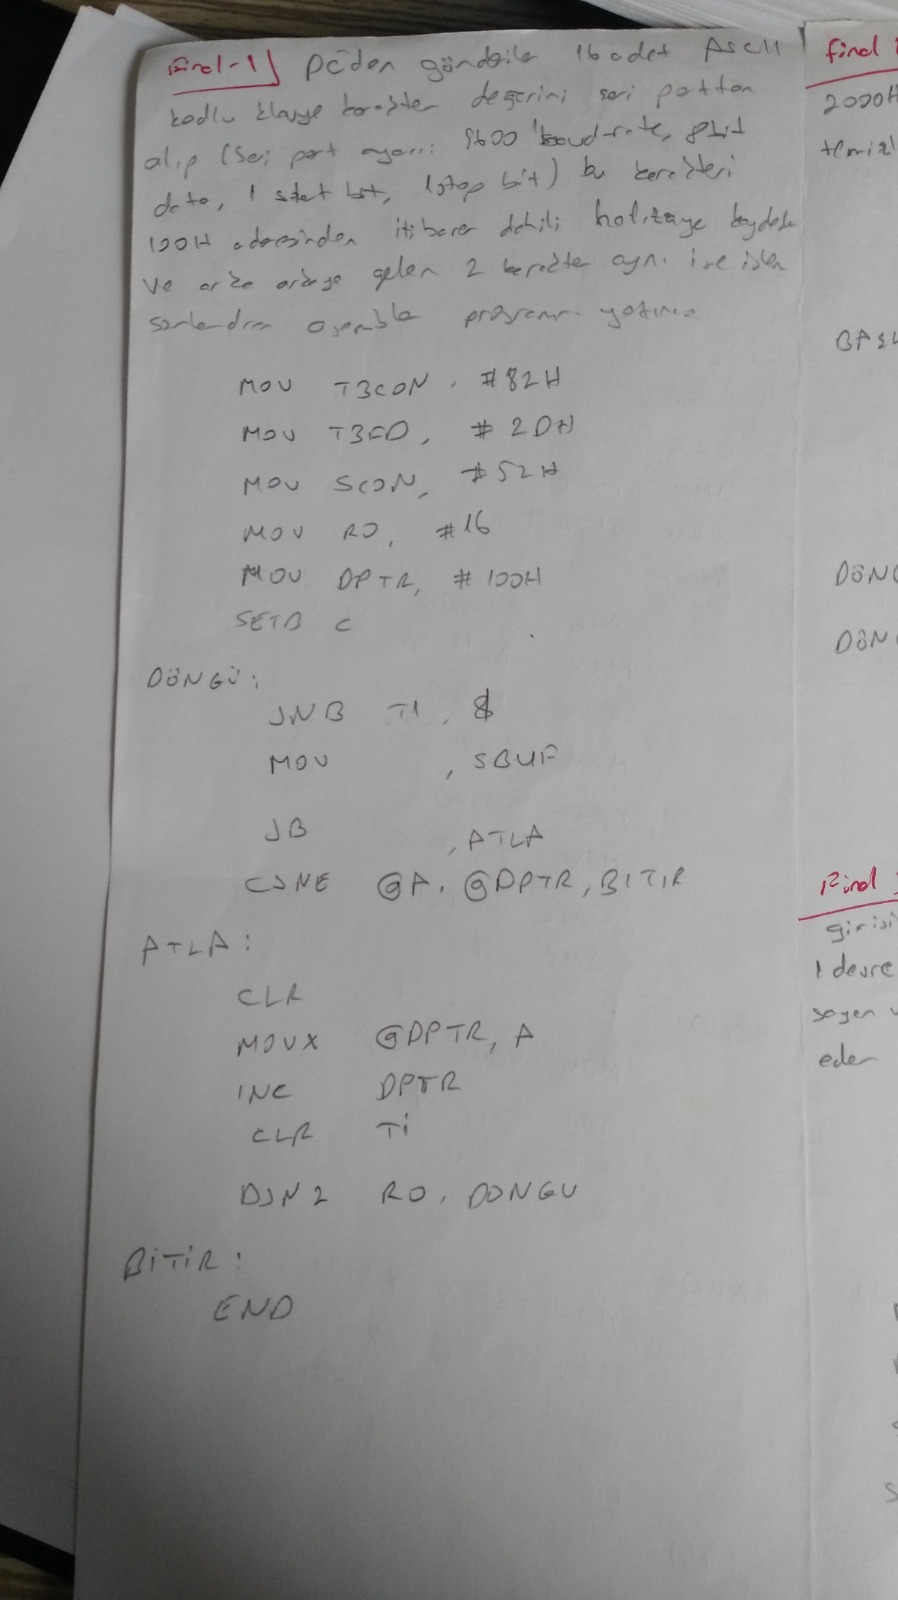 Final-1 PC'den gönderilen 16 adet ASCII
kodlu klavye karakter değerini seri porttan
alıp (Seri port ayarı: 9600 baud-rate, 8bit
data, 1 start bit, 1stop bit) bu karakteri
100H adresinden itibaren dahili hafızaya kaydeden
ve arka arkaya gelen 2 karakter aynı ise işlem
sonlandıran assembler programı yazınız.
MOV T3CON, #82H
MOV T3FD, #2DH
MOV SCON, #52H
MOV R0, #16
MOV DPTR, #100H
SETB C
DÖNGÜ:
JNB TI, $
MOV , SBUF
JB , ATLA
CJNE @A, @DPTR, BITIR
ATLA:
CLR
MOVX @DPTR, A
INC DPTR
CLR Ti
DJNZ R0, DONGU
BiTiR:
END
final
2000H
temizl
BAŞL
DÖNG
DÖN
Final
girişi
1 devre
sayan
eden